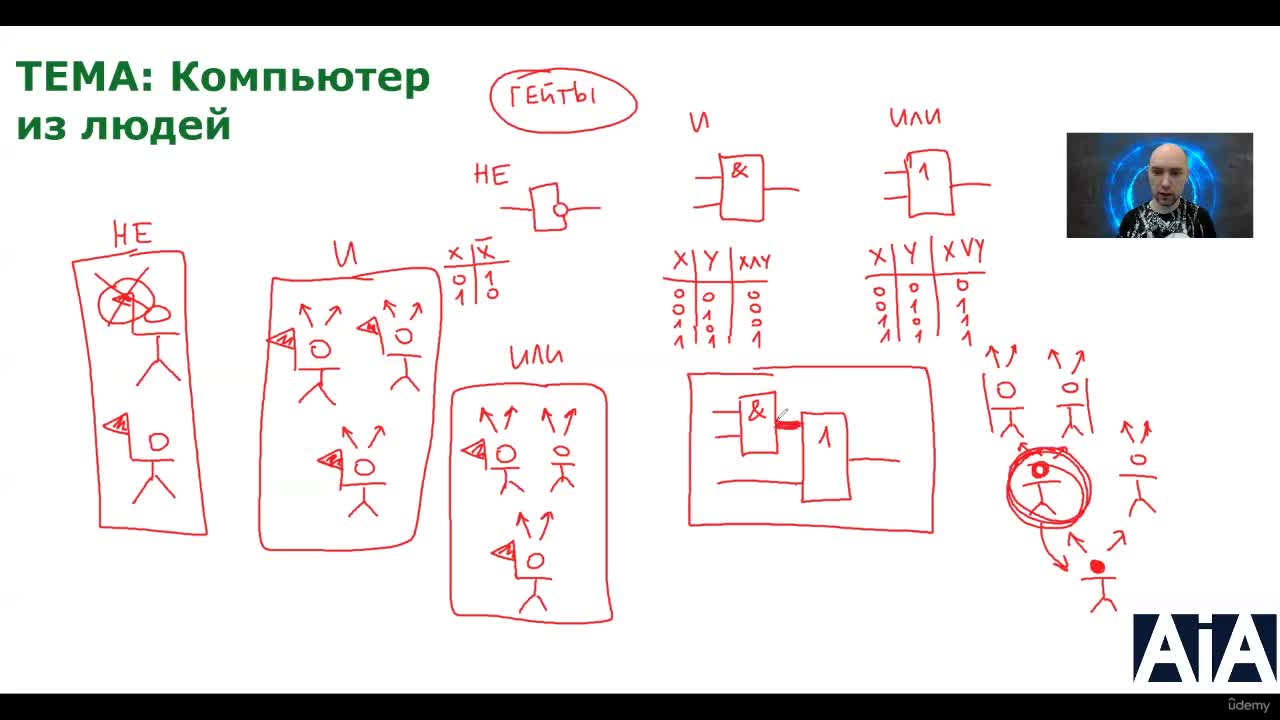 ТЕМА: Компьютер
из людей
ГЕЙТЫ
НЕ
И
&
ИЛИ
1
X X̅
0 1
1 0
X Y X∧Y
0 0 0
0 1 0
1 0 0
1 1 1
X Y X∨Y
0 0 0
0 1 1
1 0 1
1 1 1
НЕ
И
ИЛИ
&
1
AiA
ûdemy